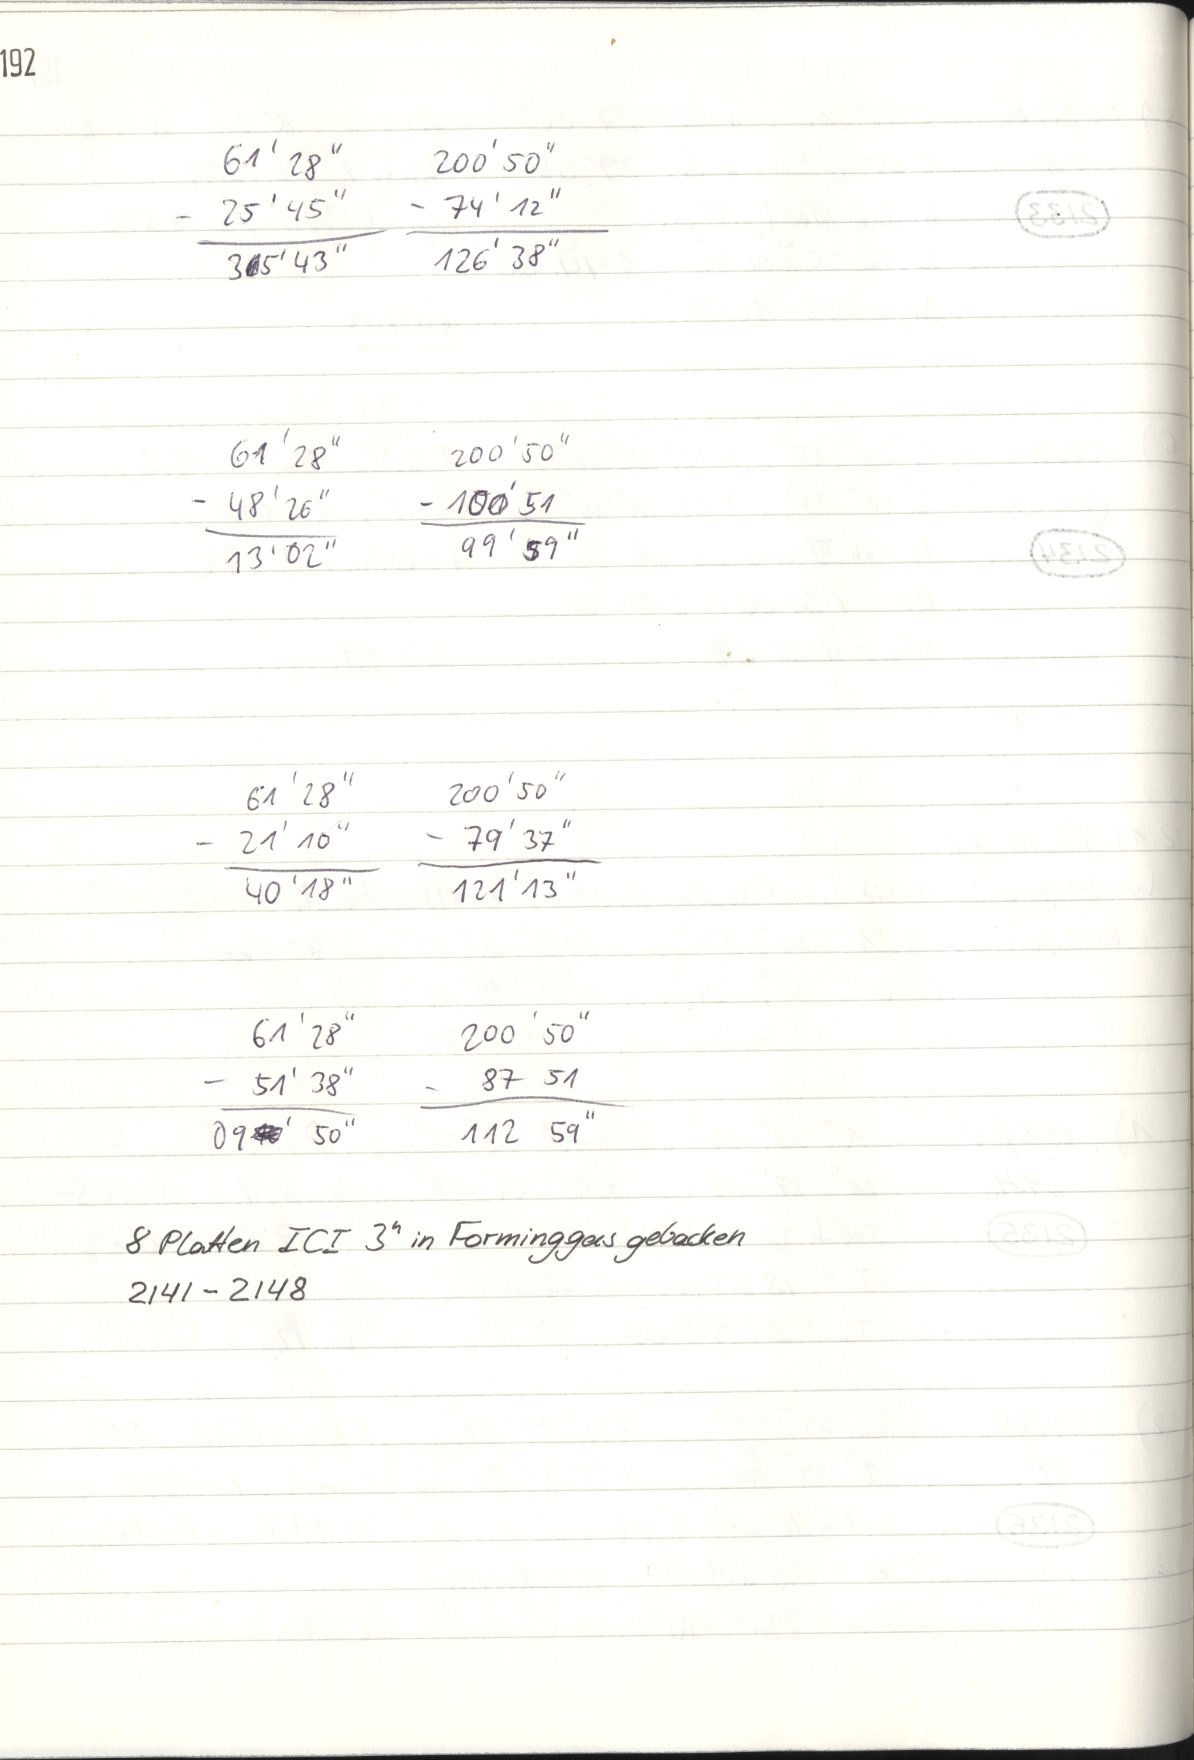 192
61' 28" 200' 50"
- 25' 45" - 74' 12"
35' 43" 126' 38"
61' 28" 200' 50"
- 48' 26" - 100' 51
13' 02" 99' 59"
61' 28" 200' 50"
- 21' 10" - 79' 37"
40' 18" 121' 13"
61' 28" 200' 50"
- 51' 38" - 87 51
09' 50" 112 59"
8 Platten ICI 3h in Forminggas gebacken
2141 - 2148